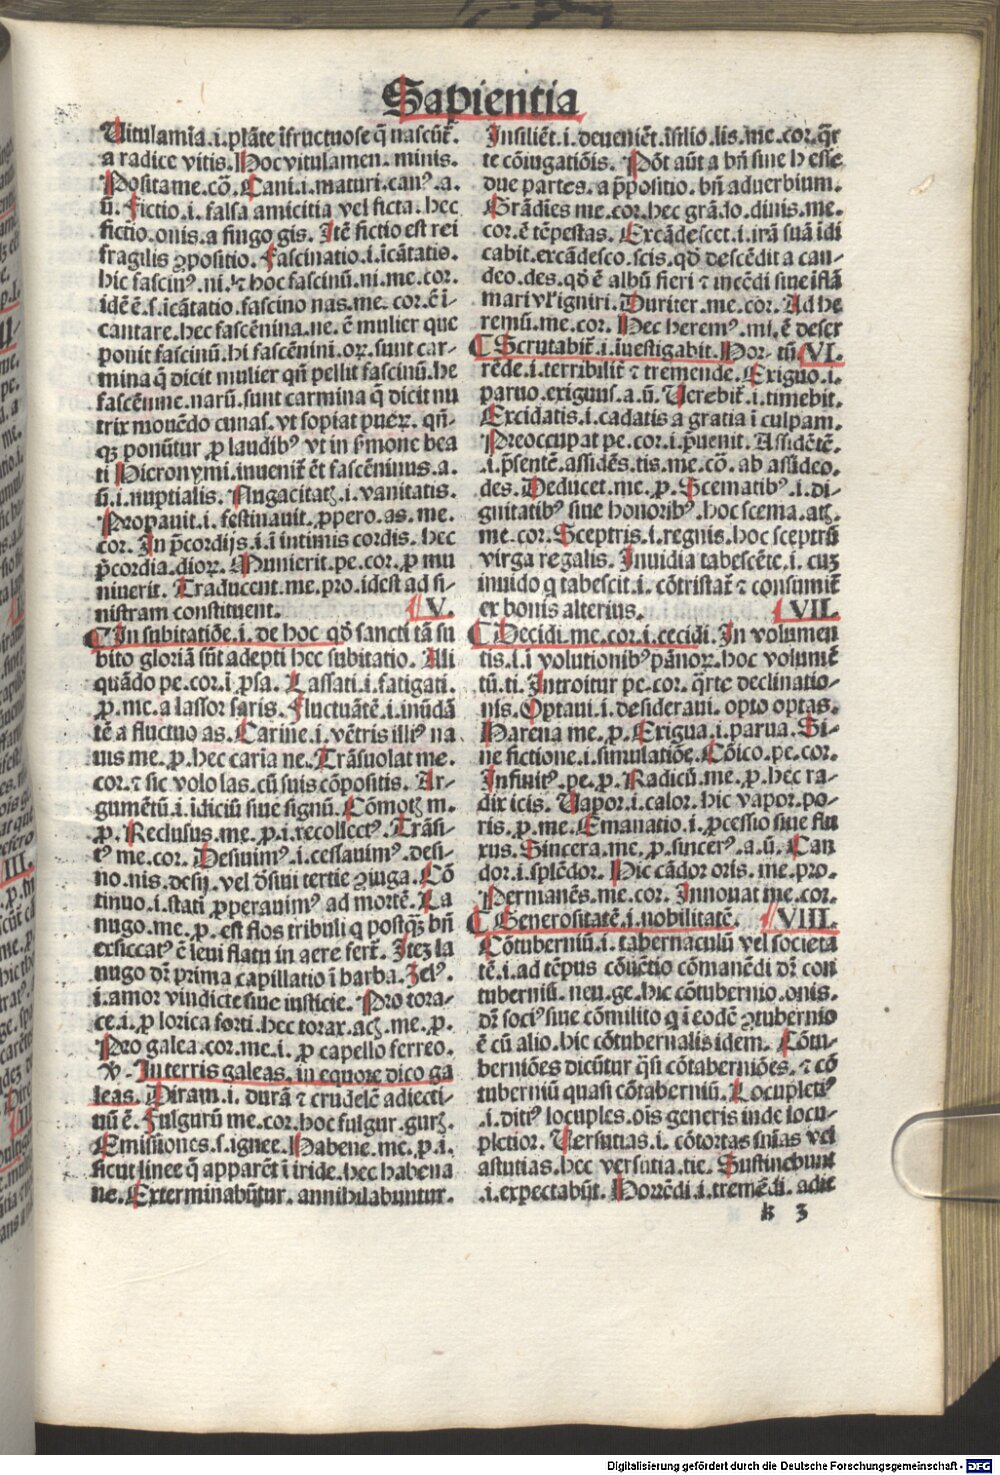 Sapientia
Uitulamīa.i.plāte īfructuose q̄ nascūt̄.
a radice vitis. Hoc vitulamen. minis.
Posita me.cō. Cani.i.maturi.canꝰ.a.
ū. Fictio.i. falsa amicitia vel ficta. hec
fictio.onis.a fingo gis. Itē fictio est rei
fragilis ꝯpositio. Fascinatio.i.icātatio.
hic fascinꝰ.ni.⁊ hoc fascinū.ni.me.cor.
idē ē.s.icātatio.fascino nas.me.cor.ē i-
cantare.hec fascēnina.ne.ē mulier que
ponit fascinū.hi fascēnini.oꝝ.sunt car-
mina q̄ dicit mulier qn̄ pellit fascinū.he
fascēnine.narū.sunt carmina q̄ dicit nu
trix mouēdo cunas.vt sopiat pueꝝ.qn̄-
qꝫ ponūtur ꝓ laudibꝰ vt in s̄mone bea
ti Hieronymi.inuenit̄ ēt fascēninus.a.
ū.i.nuptialis. Nugacitatꝭ.i.vanitatis.
Properauit.i.festinauit.ꝓpero.as.me.
cor. In p̄cordijs.i.ī intimis cordis.hec
p̄cordia.dioꝝ. Munierit.pe.cor.ꝓ mu
niuerit. Traducent.me.pro.idest ad si-
nistram constituent. V.
In subitatiōe.i.de hoc qd̄ sancti tā su
bito gloriā sūt adepti hec subitatio. Ali
quādo pe.cor.ī p̄sa. Lassati.i.fatigati.
ꝓ.me.a lassor saris. Fluctuātē.i.inūdā
tē a fluctuo as. Carine.i.vētris illiꝰ na
uis me.ꝓ.hec caria ne. Trāsuolat me.
cor.⁊ sic volo las.cū suis cōpositis. Ar-
gumētū.i.idiciū siue signū. Cōmotꝭ m.
ꝓ. Reclusus.me.ꝓ.i.recollectꝰ. Trāsi-
tꝰ me.cor. Desiuimꝰ.i.cessauimꝰ.desi-
no.nis.desij.vel d̄sini tertie ꝯiuga. Cō
tinuo.i.stati ꝓperauimꝰ ad mortē. La
nugo.me.ꝓ.est flos tribuli q postqꝫ bn̄
exsiccatꝰ ē leui flatu in aere fert̄. Itez la
nugo dr̄ prima capillatio ī barba. Zelꝰ.
i.amor vindicte siue iusticie. Pro tora-
ce.i.ꝓ lorica forti.hec torax.acꝭ.me.ꝓ.
Pro galea.cor.me.i.ꝓ capello ferreo.
℣. In terris galeas.in equore dico ga
leas. Diram.i. durā ⁊ crudelē adiecti-
uū ē. Fulgurū me.cor.hoc fulgur.gurꝭ.
Emissiones.s.ignee. Habene.me.ꝓ.i.
sicut linee q̄ apparēt ī iride.hec habena
ne. Exterminabūtur. annihilabuntur.
Insiliēt.i.deueniēt.īsilio.lis.me.cor.q̄r
te cōiugatiōis. Pōt aūt a bn̄ siue h esse
due partes.a p̄positio. bn̄ aduerbium.
Grādīes me.cor.hec grādo.dinis.me.
cor.ē tēpestas. Excādescet.i.irā suā īdi
cabit.excādesco.scis.qd̄ descēdit a can-
deo.des.qd̄ ē albū fieri ⁊ incēdi siue iflā
mari vl̓ igniri. Duriter.me.cor. Ad he
remū.me.cor. Hec heremꝰ.mi.ē deser
tū. VI.
Scrutabit̄.i.īuestigabit. Hor-
rēde.i.terribilit̄ ⁊ tremende. Exiguo.i.
paruo.exiguus.a.ū. Uerebit̄.i.timebit.
Excidatis.i.cadatis a gratia ī culpam.
Preoccupat pe.cor.i.p̄uenit. Assidētē.
.i.p̄sentē.assidēs.tis.me.cō. ab assideo.
des. Deducet.me.ꝓ. Scematibꝰ.i.di-
gnitatibꝰ siue honoribꝰ.hoc scema.atꝭ.
me.cor. Sceptris.i.regnis.hoc sceptrū
virga regalis. Inuidia tabescēte.i.cuꝫ
inuido q tabescit.i.cōtristat̄ ⁊ consumit̄
ex bonis alterius. VII.
Decidi.me.cor.i.cecidi. In volumen
tis.i.ī volutionibꝰ pānoꝝ.hoc volumē
tū.ti. Introitur pe.cor.q̄rte declinatio-
nis. Optaui.i.desideraui.opto optas.
Harena me.ꝓ. Exigua.i.parua. Si-
ne fictione.i.simulatiōe. Cōico.pe.cor.
Infinitꝰ.pe.ꝓ. Radicū.me.ꝓ.hec ra-
dix icis. Uapor.i.calor.hic vapor.po-
ris.ꝓ.me. Emanatio.i.ꝓcessio siue flu
xus. Sincera.me.ꝓ.sincerꝰ.a.ū. Can
dor.i.splēdor. Hic cādor oris.me.pro.
Permanēs.me.cor. Innouat me.cor.
Generositatē.i.nobilitatē. VIII.
Cōtuberniū.i.tabernaculū vel societa
tē.i.ad tēpus cōuētio cōmanēdi dr̄ con
tuberniū.neu.ge.hic cōtubernio.onis.
dr̄ sociꝰ siue cōmilito q i eodē ꝯtubernio
ē cū alio.hic cōtubernalis idem. Cōtu-
berniōes dicūtur q̄si cōtaberniōes.⁊ cō
tuberniū quasi cōtaberniū. Locupletiꝰ
.i.ditiꝰ locuples.oīs generis inde locu-
pletior. Uersutias.i. cōtortas snīas vel
astutias.hec versutia.tie. Sustinebunt
.i.expectabūt. Horrēdi.i.tremēdi. adie
k 3
Digitalisierung gefördert durch die Deutsche Forschungsgemeinschaft - DFG